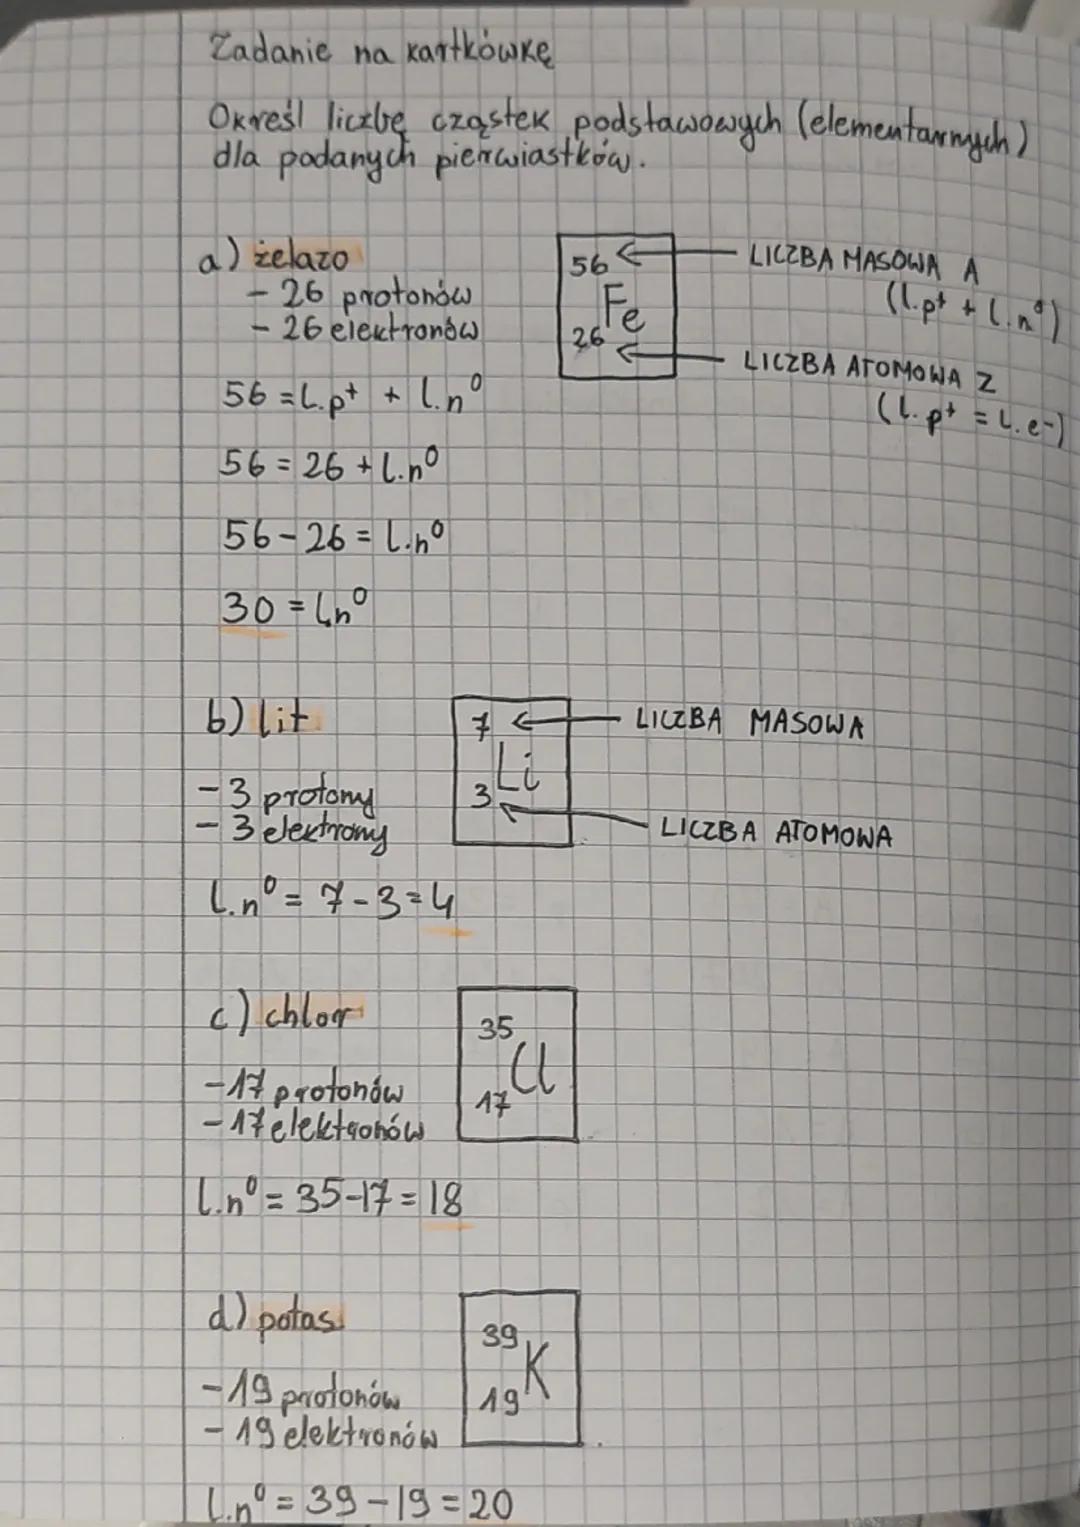 Zadanie na kartkówkę
Określ liczbę cząstek podstawowych (elementarnych)
dla podanych pierwiastków.
a) żelazo
- 26 protonów
- 26 elektronów
56
Fe
26
LICZBA MASOWA A
(l.p⁺ + l.n⁰)
LICZBA ATOMOWA Z
(l.p⁺ = l.e⁻)
56 = l.p⁺ + l.n⁰
56 = 26 + l.n⁰
56 - 26 = l.n⁰
30 = l.n⁰
b) lit
7
Li
3
LICZBA MASOWA
LICZBA ATOMOWA
- 3 protony
- 3 elektrony
l.n⁰ = 7 - 3 = 4
c) chlor
35
Cl
17
- 17 protonów
- 17 elektronów
l.n⁰ = 35-17 = 18
d) potas
39
K
19
- 19 protonów
- 19 elektronów
l.n⁰ = 39 - 19 = 20